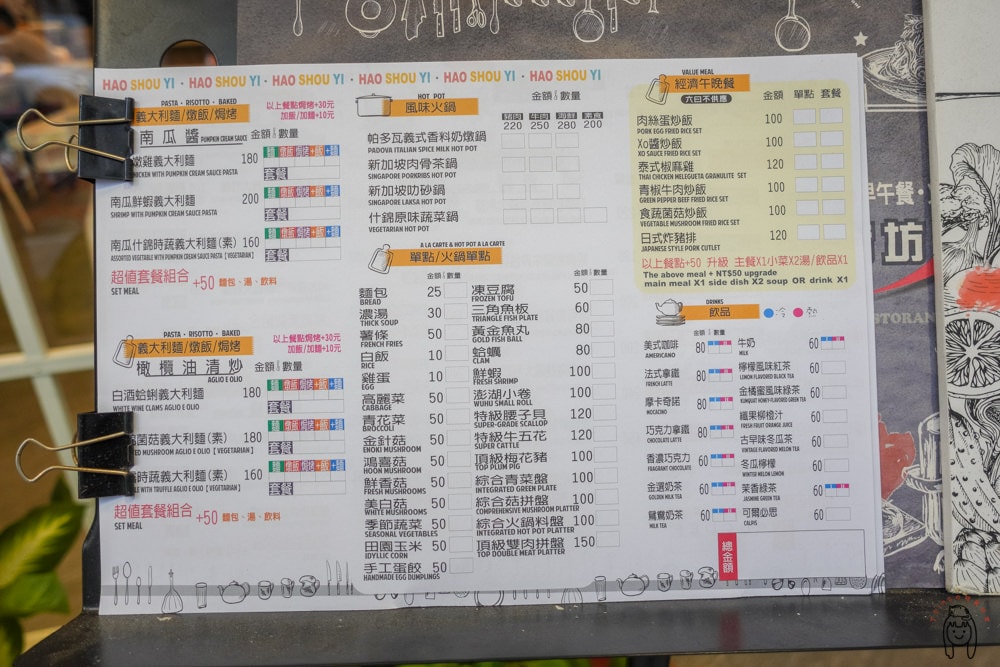 HAO SHOU YI · HAO SHOU YI · HAO SHOU YI · HAO SHOU YI · HAO SHOU YI · HAO SHOU YI
PASTA · RISOTTO · BAKED
義大利麵/燉飯/焗烤
以上餐點焗烤+30元
加飯/加麵+10元
南瓜醬 PUMPKIN CREAM SAUCE
金額 數量
嫩雞義大利麵 180
CHICKEN WITH PUMPKIN CREAM SAUCE PASTA
套餐
南瓜鮮蝦義大利麵 200
SHRIMP WITH PUMPKIN CREAM SAUCE PASTA
套餐
南瓜什錦時蔬義大利麵(素) 160
ASSORTED VEGETABLE WITH PUMPKIN CREAM SAUCE PASTA【VEGETARIAN】
套餐
超值套餐組合 +50 麵包、湯、飲料
SET MEAL
PASTA · RISOTTO · BAKED
義大利麵/燉飯/焗烤
以上餐點焗烤+30元
加飯/加麵+10元
橄欖油清炒
AGLIO E OLIO
金額 數量
白酒蛤蜊義大利麵 180
WHITE WINE CLAMS AGLIO E OLIO
套餐
菌菇義大利麵(素) 180
MUSHROOM AGLIO E OLIO【VEGETARIAN】
套餐
時蔬義大利麵(素) 160
WITH TRUFFLE AGLIO E OLIO【VEGETARIAN】
套餐
超值套餐組合 +50 麵包、湯、飲料
SET MEAL
HOT POT
風味火鍋
金額 數量
豬肉 牛肉 海鮮 素食
220 250 280 200
帕多瓦義式香料奶燉鍋
PADOVA ITALIAN SPICE MILK HOT POT
新加坡肉骨茶鍋
SINGAPORE PORKRIBS HOT POT
新加坡叻砂鍋
SINGAPORE LAKSA HOT POT
什錦原味蔬菜鍋
VEGETARIAN HOT POT
A LA CARTE & HOT POT A LA CARTE
單點/火鍋單點
金額 數量
麵包 25
BREAD
濃湯 30
THICK SOUP
薯條 50
FRENCH FRIES
白飯 10
RICE
雞蛋 10
EGG
高麗菜 50
CABBAGE
青花菜 50
BROCCOLI
金針菇 50
ENOKI MUSHROOM
鴻喜菇 50
HOON MUSHROOM
鮮香菇 50
FRESH MUSHROOMS
美白菇 50
WHITE MUSHROOMS
季節蔬菜 50
SEASONAL VEGETABLES
田園玉米 50
IDYLLIC CORN
手工蛋餃 50
HANDMADE EGG DUMPLINGS
金額 數量
凍豆腐 50
FROZEN TOFU
三角魚板 60
TRIANGLE FISH PLATE
黃金魚丸 80
GOLD FISH BALL
蛤蠣 80
CLAM
鮮蝦 100
FRESH SHRIMP
澎湖小卷 100
WUHU SMALL ROLL
特級腰子貝 120
SUPER-GRADE SCALLOP
特級牛五花 120
SUPER CATTLE
頂級梅花豬 100
TOP PLUM PIG
綜合青菜盤 100
INTEGRATED GREEN PLATE
綜合菇拼盤 100
COMPREHENSIVE MUSHROOM PLATTER
綜合火鍋料盤 100
INTEGRATED HOT POT PLATTER
頂級雙肉拼盤 150
TOP DOUBLE MEAT PLATTER
VALUE MEAL
經濟午晚餐
六日不供應
金額 單點 套餐
肉絲蛋炒飯 100
PORK EGG FRIED RICE SET
Xo醬炒飯 100
XO SAUCE FRIED RICE SET
泰式椒麻雞 120
THAI CHICKEN MELEGUETA GRANULITE SET
青椒牛肉炒飯 100
GREEN PEPPER BEEF FRIED RICE SET
食蔬菌菇炒飯 100
VEGETABLE MUSHROOM FRIED RICE SET
日式炸豬排 120
JAPANESE STYLE PORK CUTLET
以上餐點+50 升級 主餐X1小菜X2湯/飲品X1
The above meal + NT$50 upgrade
main meal X1 side dish X2 soup OR drink X1
DRINKS
飲品
冷 熱
金額 數量
美式咖啡 80
AMERICANO
法式拿鐵 80
FRENCH LATTE
摩卡奇諾 80
MOCACINO
巧克力拿鐵 80
CHOCOLATE LATTE
香濃巧克力 60
FRAGRANT CHOCOLATE
金選奶茶 60
GOLDEN MILK TEA
鴛鴦奶茶 60
MILK TEA
金額 數量
牛奶 60
MILK
檸檬風味紅茶 60
LEMON FLAVORED BLACK TEA
金橘蜜風味綠茶 60
KUMQUAT HONEY-FLAVORED GREEN TEA
鐵果柳橙汁 60
FRESH FRUIT ORANGE JUICE
古早味冬瓜茶 60
VINTAGE FLAVORED MELON TEA
冬瓜檸檬 60
WINTER MELON LEMON
茉香綠茶 60
JASMINE GREEN TEA
可爾必思 60
CALPIS
總金額
早午餐·
坊
STORAN